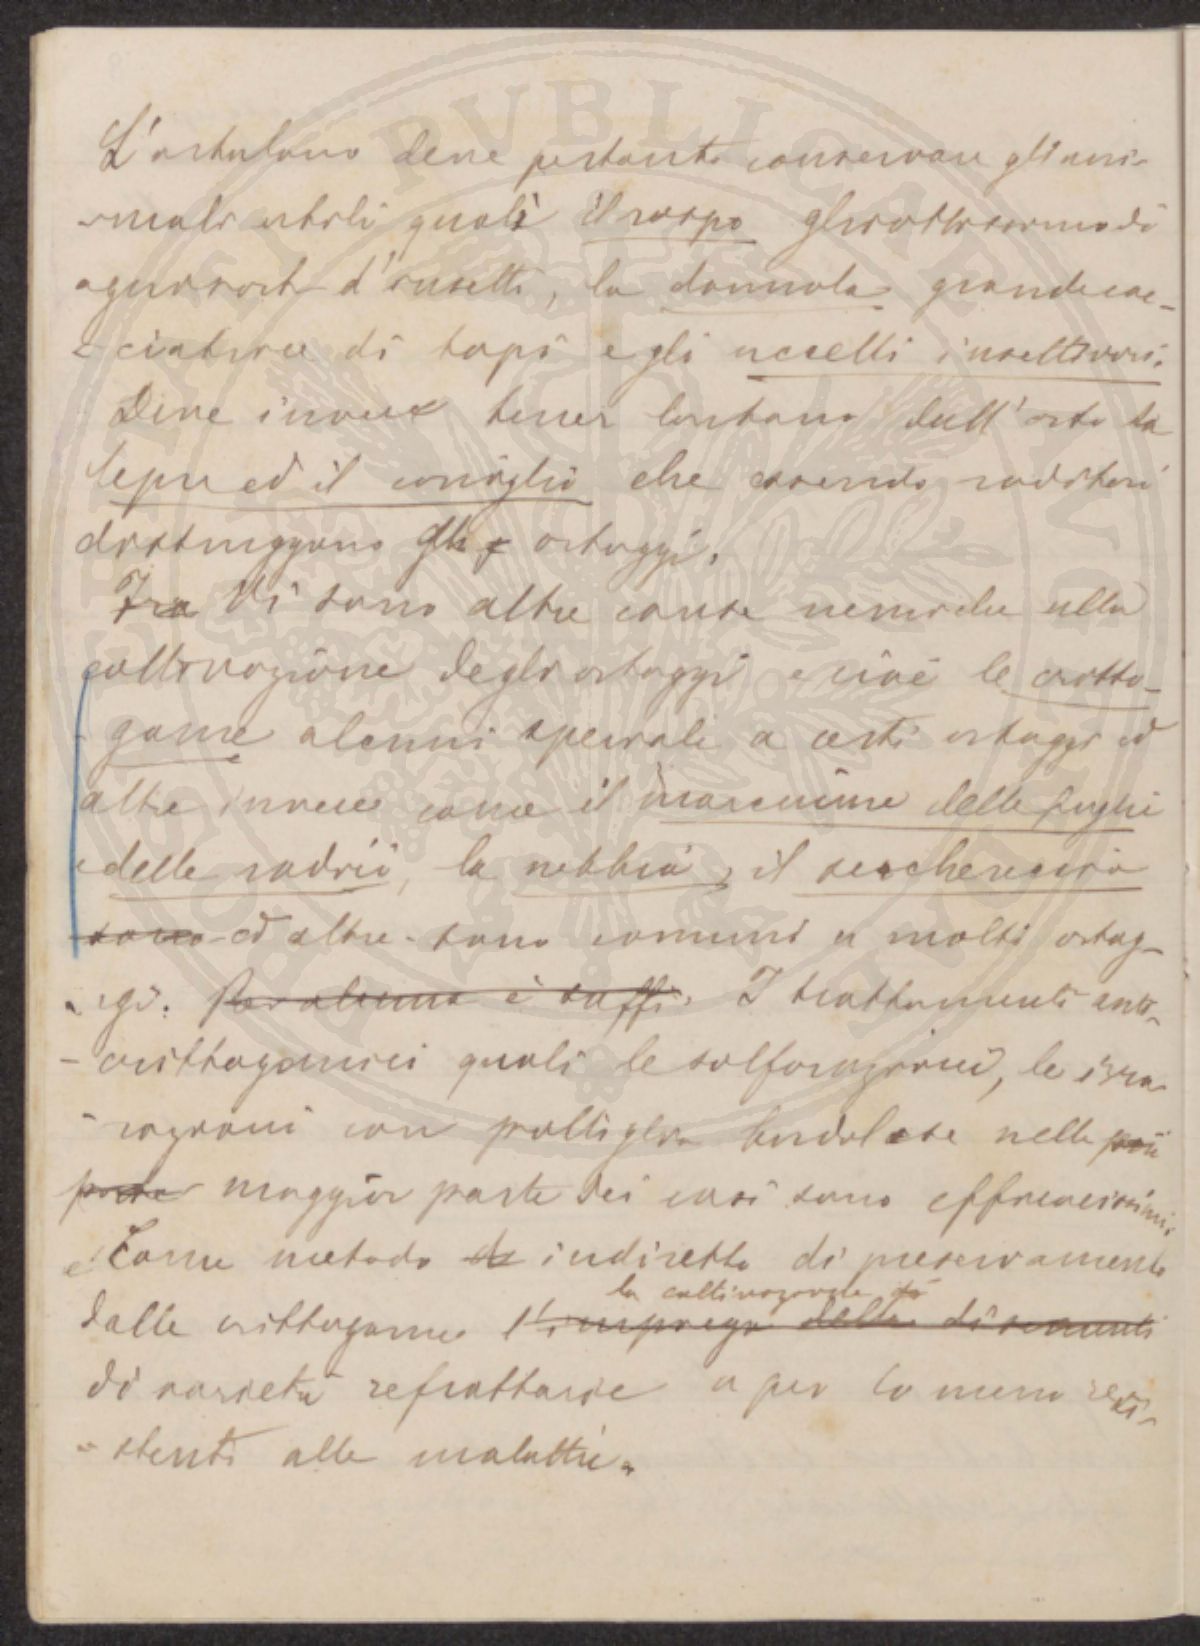 L'ortolano deve pertanto conservare gli ani-
-mali utili quali il rospo ghiottissimo di
ogni sorta d'insetti, la donnola grande cac-
-ciatrice di topi e gli uccelli insettivori.
Deve invece tener lontano dall'orto la
lepre ed il coniglio che essendo roditori
distruggono gli ortaggi.
Tra Vi sono altre cause nemiche alla
coltivazione degli ortaggi e cioè le critto-
-game alcuni speciali a certi ortaggi ed
altre invece come il marciume delle foglie
e delle radici, la nebbia, il secchereccio
sono ed altre sono comuni a molti ortag-
-gi. Per alcune è suffi. I trattamenti anti-
-crittogamici quali le solforazioni, le irro-
-razioni con poltiglia bordolese nella più
parte maggior parte dei casi sono efficacissimi,
e come metodo di indiretto di preservamento
la coltivazione di
dalle crittogame l'impiego delle di sementi
di varietà refrattarie o per lo meno resi-
-stenti alle malattie.